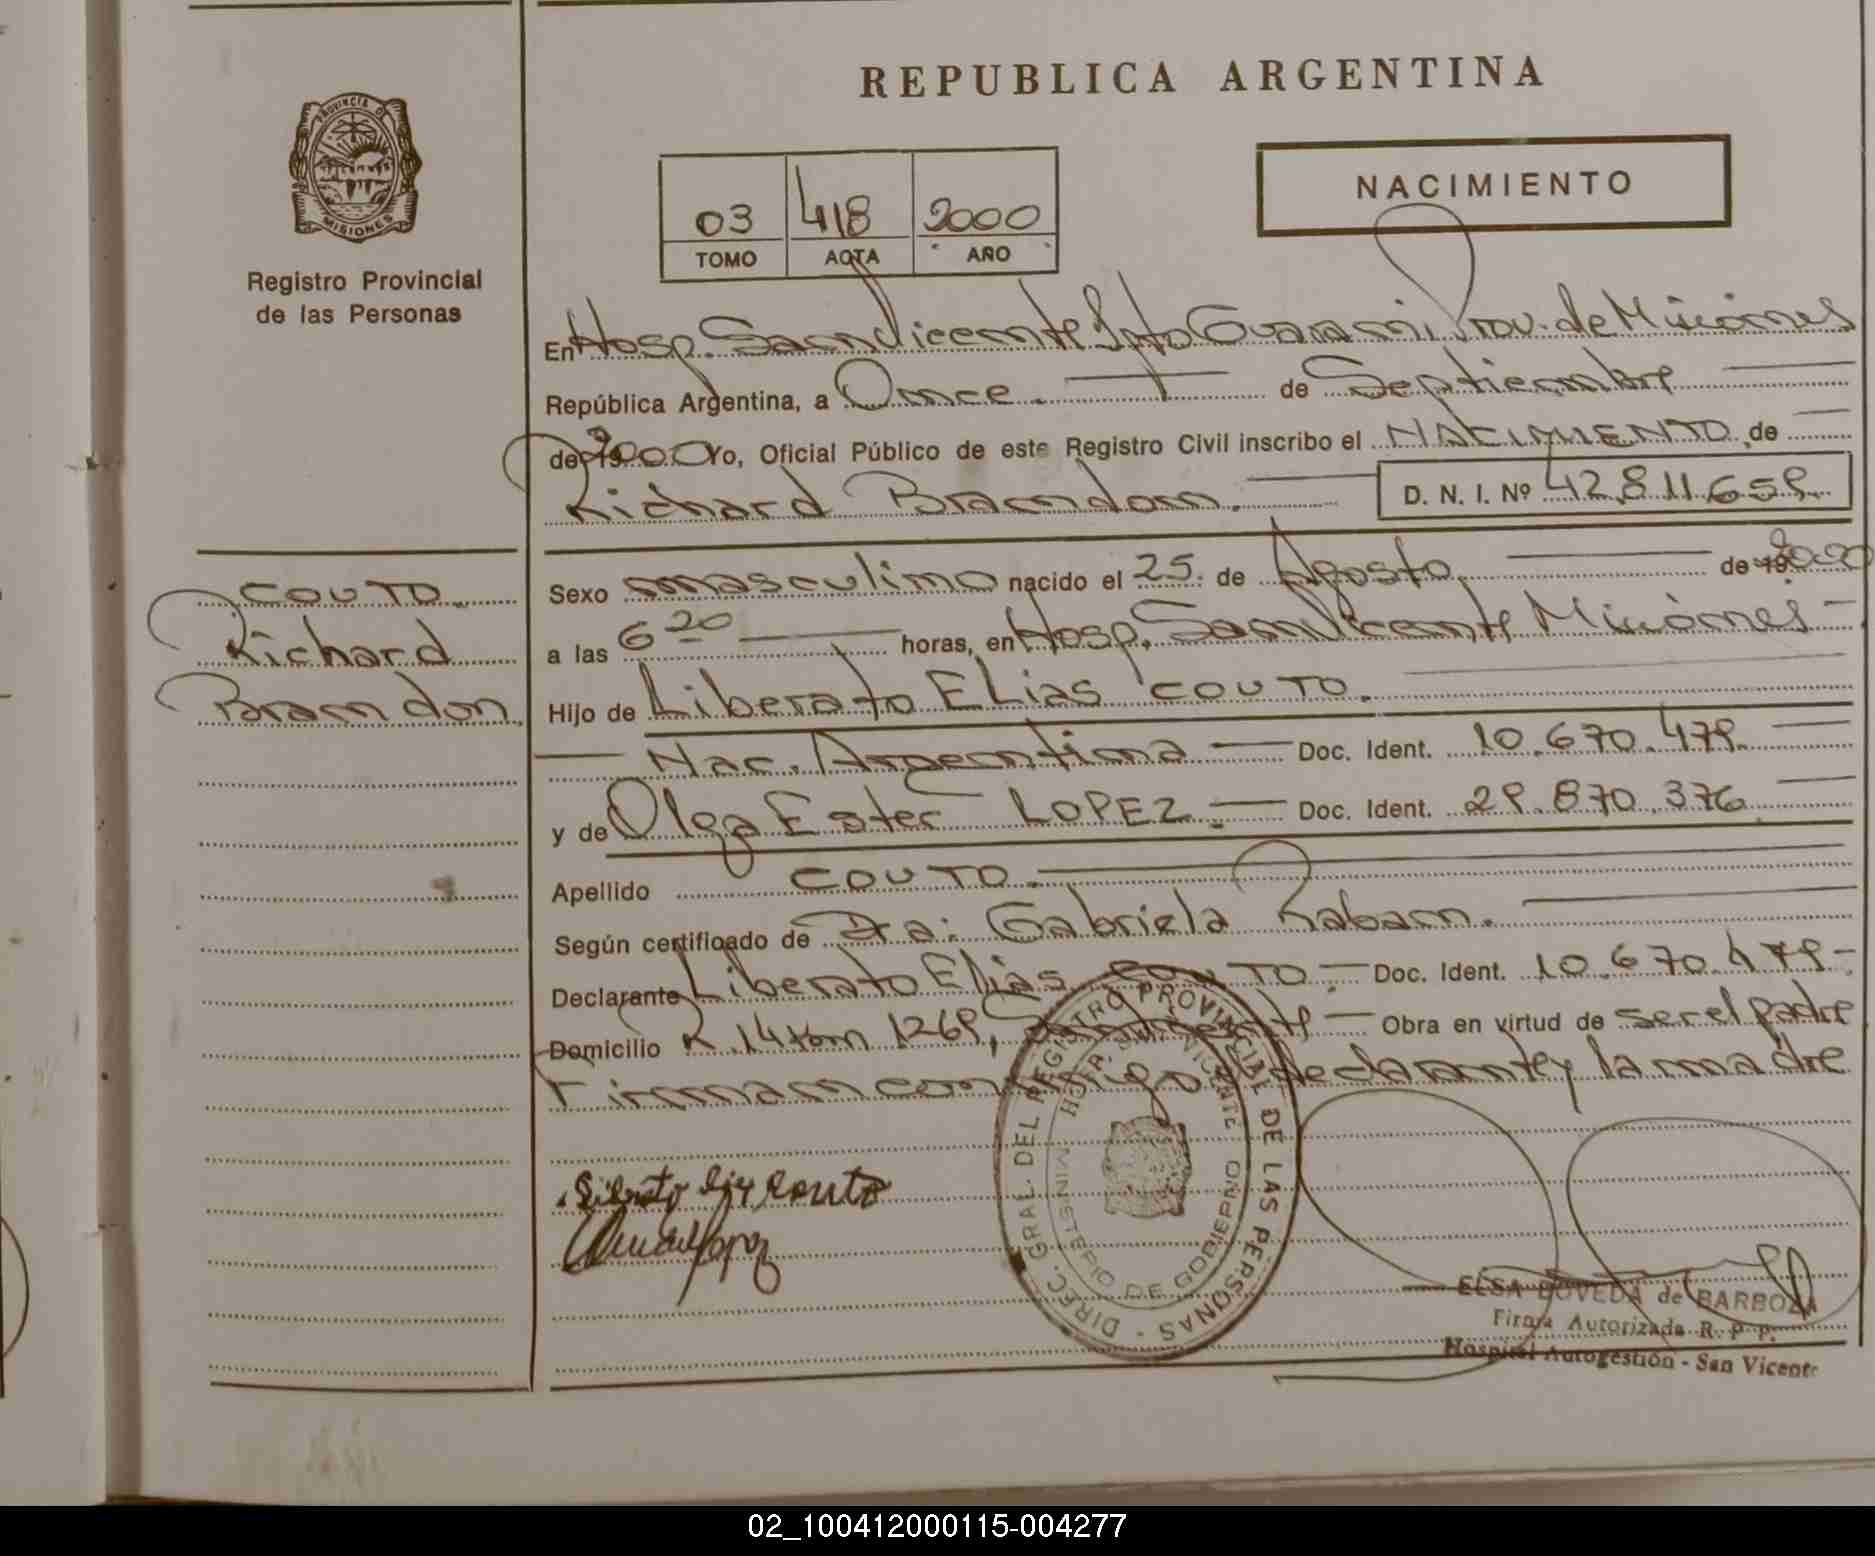 REPUBLICA ARGENTINA
PROVINCIA D
MISIONES
Registro Provincial
de las Personas
03 418 2000
TOMO ACTA AÑO
NACIMIENTO
En Hosp. San Vicente Dpto Guarani, Prov. de Misiones
República Argentina, a Once. de Septiembre
de 19 2000 Yo, Oficial Público de este Registro Civil inscribo el NACIMIENTO de
Richard Brandon. D. N. I. Nº 42.811.659.
COUTO.
Richard
Brandon.
Sexo masculino nacido el 25. de Agosto de 19 2000
a las 6 20 horas, en Hosp. San Vicente Misiones
Hijo de Liberato ELias COUTO.
Nac. Argentina Doc. Ident. 10.670.479.
y de Olga Ester LOPEZ. Doc. Ident. 29.870.376
Apellido COUTO.
Según certificado de Dra: Gabriela Raban.
Declarante Liberato Elias COUTO. Doc. Ident. 10.670.479
Domicilio R.14 km 1269, San Vicente Obra en virtud de ser el padre
Firman conmigo el declarante y la madre
Liberato Elias Couto
Lopez
DIREC. GRAL. DEL REGISTRO PROVINCIAL DE LAS PERSONAS
SAN VICENTE
MINISTERIO DE GOBIERNO
ELSA BOVEDA de BARBOZA
Firma Autorizada R. P. P.
Hospital Autogestión - San Vicente
02_100412000115-004277